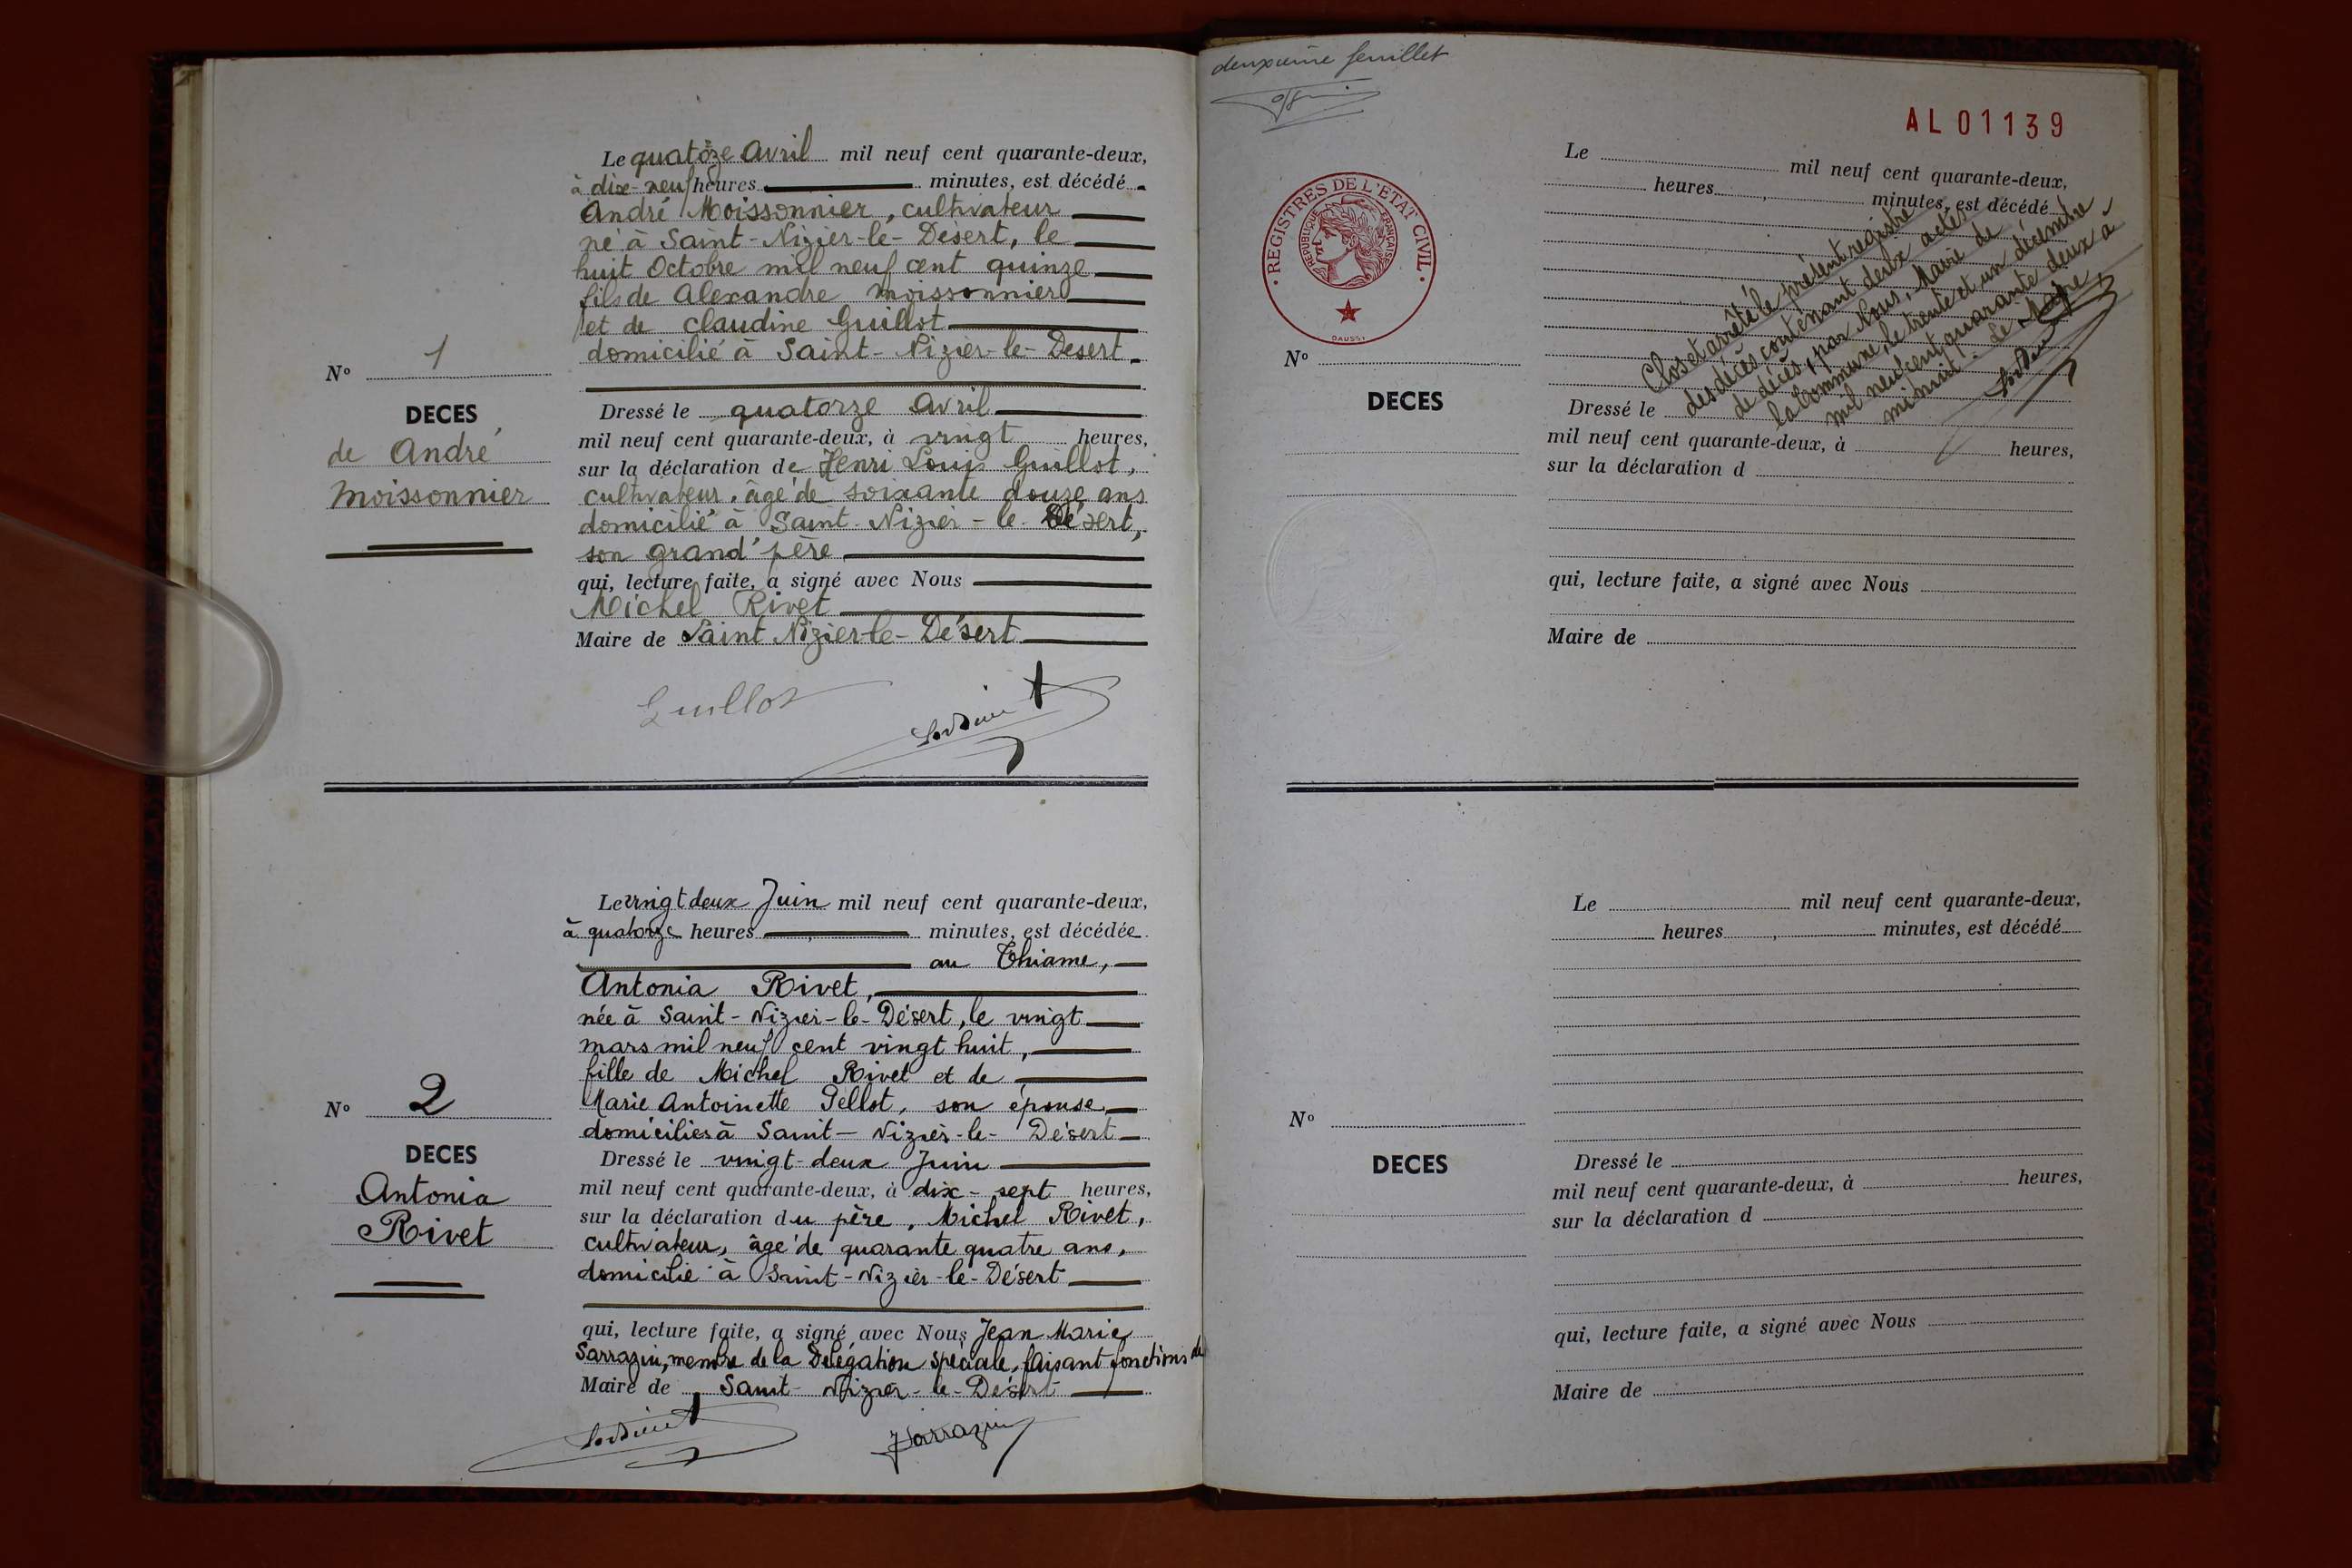 Le quatorze Avril mil neuf cent quarante-deux,
à dix-neuf heures minutes, est décédé
André Moissonnier, cultivateur
né à Saint-Nizier-le-Désert, le
huit Octobre mil neuf cent quinze
fils de Alexandre Moissonnier
et de Claudine Guillot
domicilié à Saint-Nizier-le-Désert
N° 1
DECES
de André
Moissonnier
Dressé le quatorze Avril
mil neuf cent quarante-deux, à vingt heures,
sur la déclaration de Henri Louis Guillot,
cultivateur, âgé de soixante douze ans
domicilié à Saint-Nizier-le-Désert,
son grand'père
qui, lecture faite, a signé avec Nous
Michel Rivet
Maire de Saint Nizier-le-Désert
Guillot
Le vingt deux Juin mil neuf cent quarante-deux,
à quatorze heures minutes, est décédée
au Thiame,
Antonia Rivet,
née à Saint-Nizier-le-Désert, le vingt
mars mil neuf cent vingt huit,
fille de Michel Rivet et de
Marie Antoinette Pellot, son épouse,
domiciliés à Saint-Nizier-le-Désert
N° 2
DECES
Antonia
Rivet
Dressé le vingt-deux Juin
mil neuf cent quarante-deux, à dix-sept heures,
sur la déclaration du père, Michel Rivet,
cultivateur, âgé de quarante quatre ans,
domicilié à Saint-Nizier-le-Désert
qui, lecture faite, a signé avec Nous Jean Marie
Sarrazin, membre de la Délégation spéciale, faisant fonctions de
Maire de Saint-Nizier-le-Désert
JSarrazin
deuxième feuillet
AL01139
REGISTRES DE L'ETAT CIVIL
REPUBLIQUE FRANÇAISE
DAUSSY
Le mil neuf cent quarante-deux,
heures, minutes, est décédé
Clos et arrêté le présent registre
des décès contenant deux actes
de décès, par Nous, Maire de
la Commune, le trente et un décembre
mil neuf cent quarante deux à
minuit. Le Maire,
N°
DECES
Dressé le
mil neuf cent quarante-deux, à heures,
sur la déclaration d
qui, lecture faite, a signé avec Nous
Maire de
Le mil neuf cent quarante-deux,
heures, minutes, est décédé
N°
DECES
Dressé le
mil neuf cent quarante-deux, à heures,
sur la déclaration d
qui, lecture faite, a signé avec Nous
Maire de